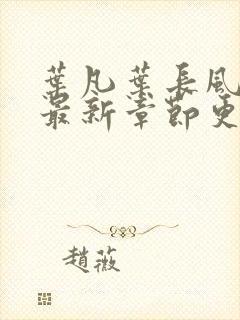 葉凡葉長風
最新章節更
趙薇